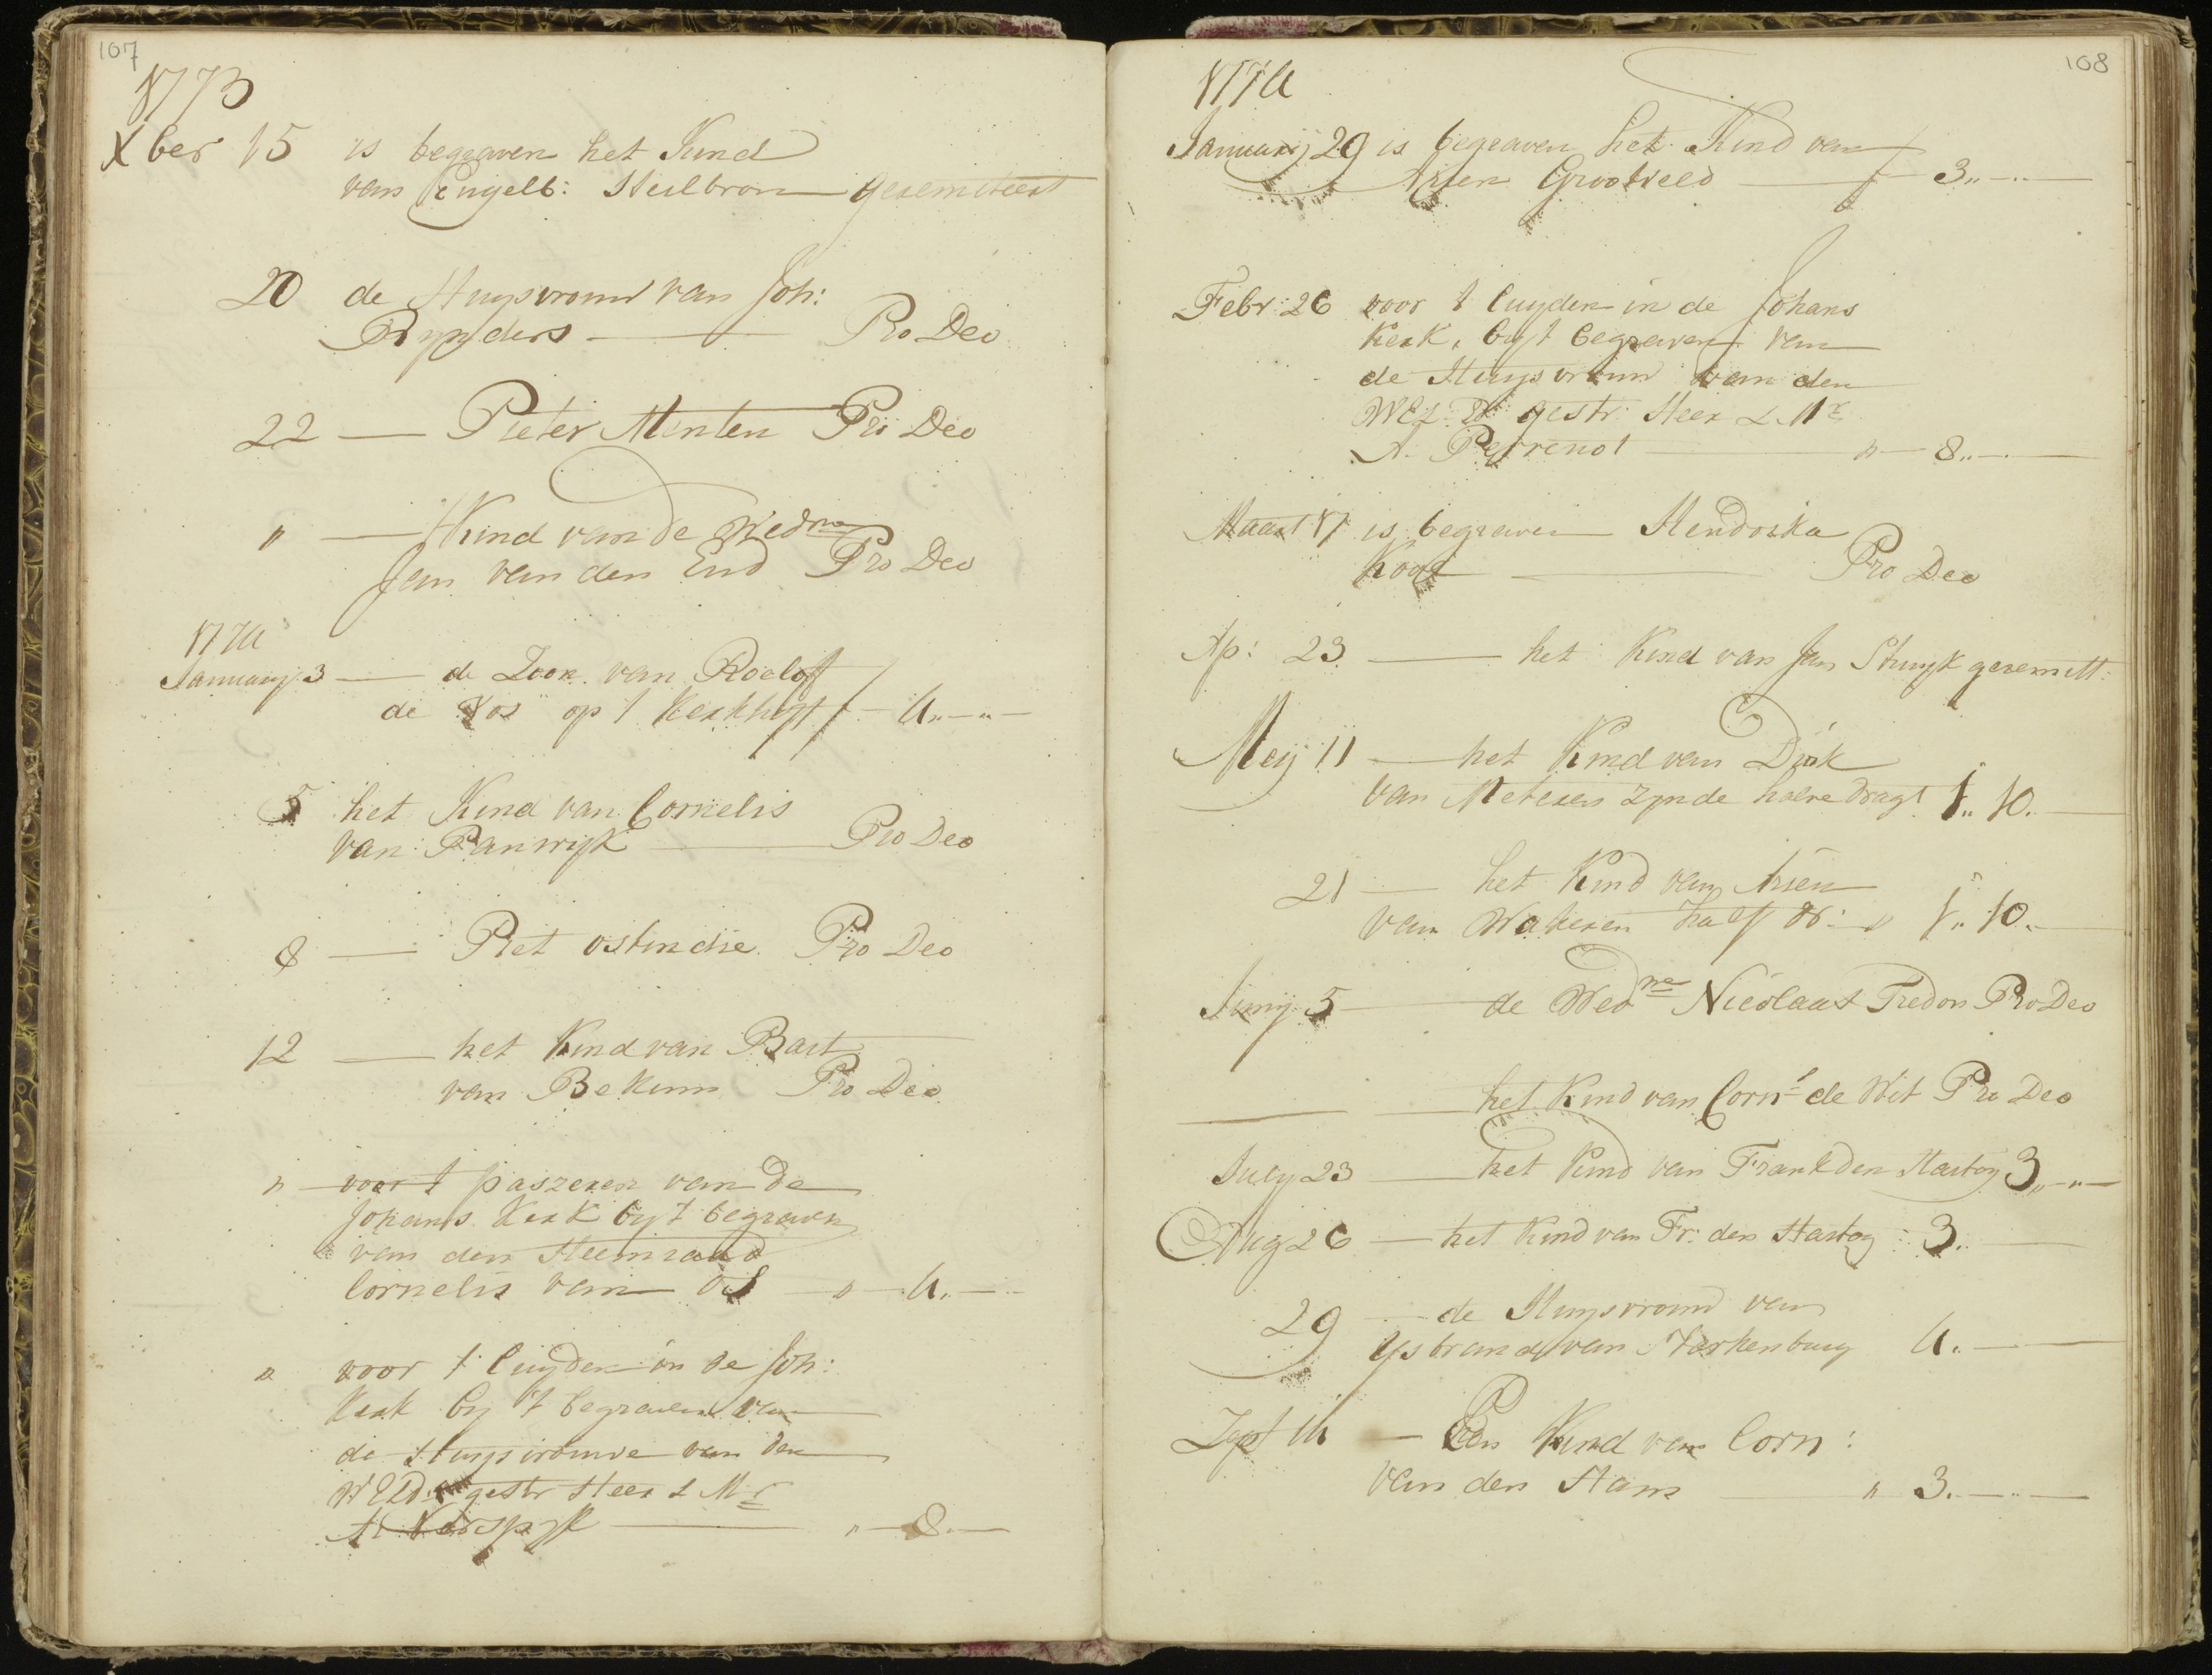 107
1773
Xber 15 is begraven het Kind
van Engelb: Heilbron geremitteert
20 de Huysvrouw van Joh:
Rynders — Pro Deo
22 — Pieter Menten Pro Deo
" — 't Kind van de Wed.we
Jan van den End Pro Deo
1774
January 3 — de Zoon van Roelof
de Vos op 't Kerkhoff f — 4,,—,,—
5 het Kind van Cornelis
van Panwyk — Pro Deo
8 — Piet ostindie Pro Deo
12 — het Kind van Bart
van Bekum Pro Deo
" voor 't paszeren van de
Johans Kerk by 't begraven
van den Heemraad
Cornelis van Os — " — 4.—
" voor 't luyden in de Joh:
Kerk by 't begraven van
de Huysvrouwe van den
WEld: gestr Heer & Mr
A. — " — 8.—
108
1774
January 29 is begraven het Kind van
Arien Grootveld — f 3,,—,,—
Febr: 26 voor 't luyden in de Johans
Kerk, by 't begraven van
de Huysvrouw van den
WEd: gestr: Heer & Mr
A. Perrenot — " — 8,,—.—
Maart 17 is begraven Hendrika
Kooy — Pro Deo
Ap: 23 — het Kind van Jan Struyk geremitt:
Mey 11 — het Kind van Dirk
van Meteren zynde halve dragt 1,, 10.—
21 — het Kind van Arien
van Wateren half dr: " 1,, 10.—
Juny 5 — de Wedwe Nicolaas Tredon Pro Deo
— het Kind van Corns de Wit Pro Deo
July 23 — het Kind van Frank den Hartog 3,,—,,—
Aug 26 — het Kind van Fr: den Hartog 3.—
29 — de Huysvrouw van
Ysbrand van Varkenburg 4.—
Sept 14 — Een Kind van Corn:
van den Ham — " 3.—,,—